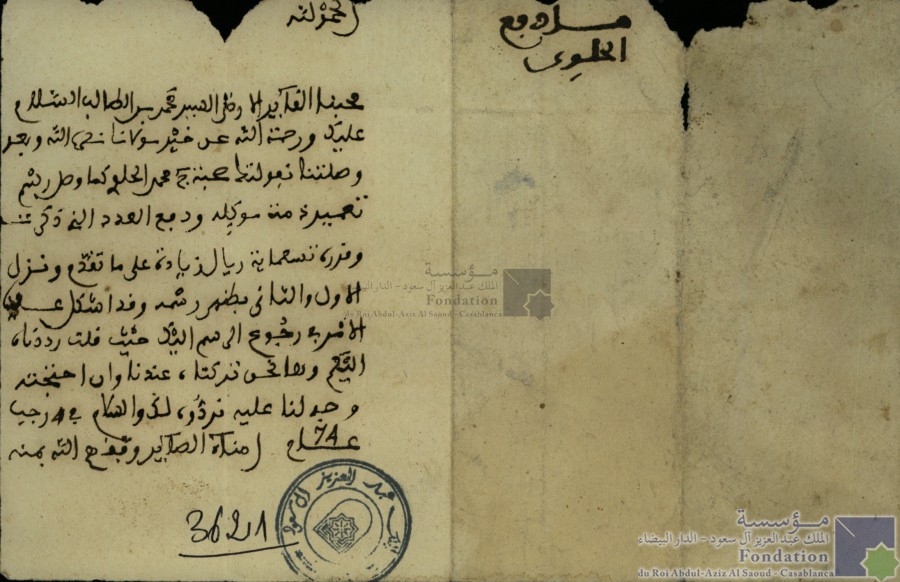 الحمد لله
محبنا الفايد الارضى السيد محمد بن الطالب السلام
عليك ورحمة الله عن خير مولانا نصره الله وبعد
وصلتنا صحبة محمد الحلوى كما وصل
ودفع العدد الذى ذكر
وقدره تسعماية ريال زيادة على ما تقدم ونزل
الاول والثانى بظهر رسمه وقد اشكل
الامر فى رجوع الرسم اليك حيث قلت رددناه
اليكم وها نحن تركناه عندنا وان احتجته
وجه لنا عليه نردّه لك والسلام فى رجب
عام 74 امناء الصاير وفقهم الله بمنه
3621
عبد العزيز ال سعود
دفع
الحلوى
مؤسسة
الملك عبد العزيز آل سعود - الدار البيضاء
Fondation
du Roi Abdul-Aziz Al Saoud - Casablanca
مؤسسة
الملك عبد العزيز آل سعود - الدار البيضاء
Fondation
du Roi Abdul-Aziz Al Saoud - Casablanca